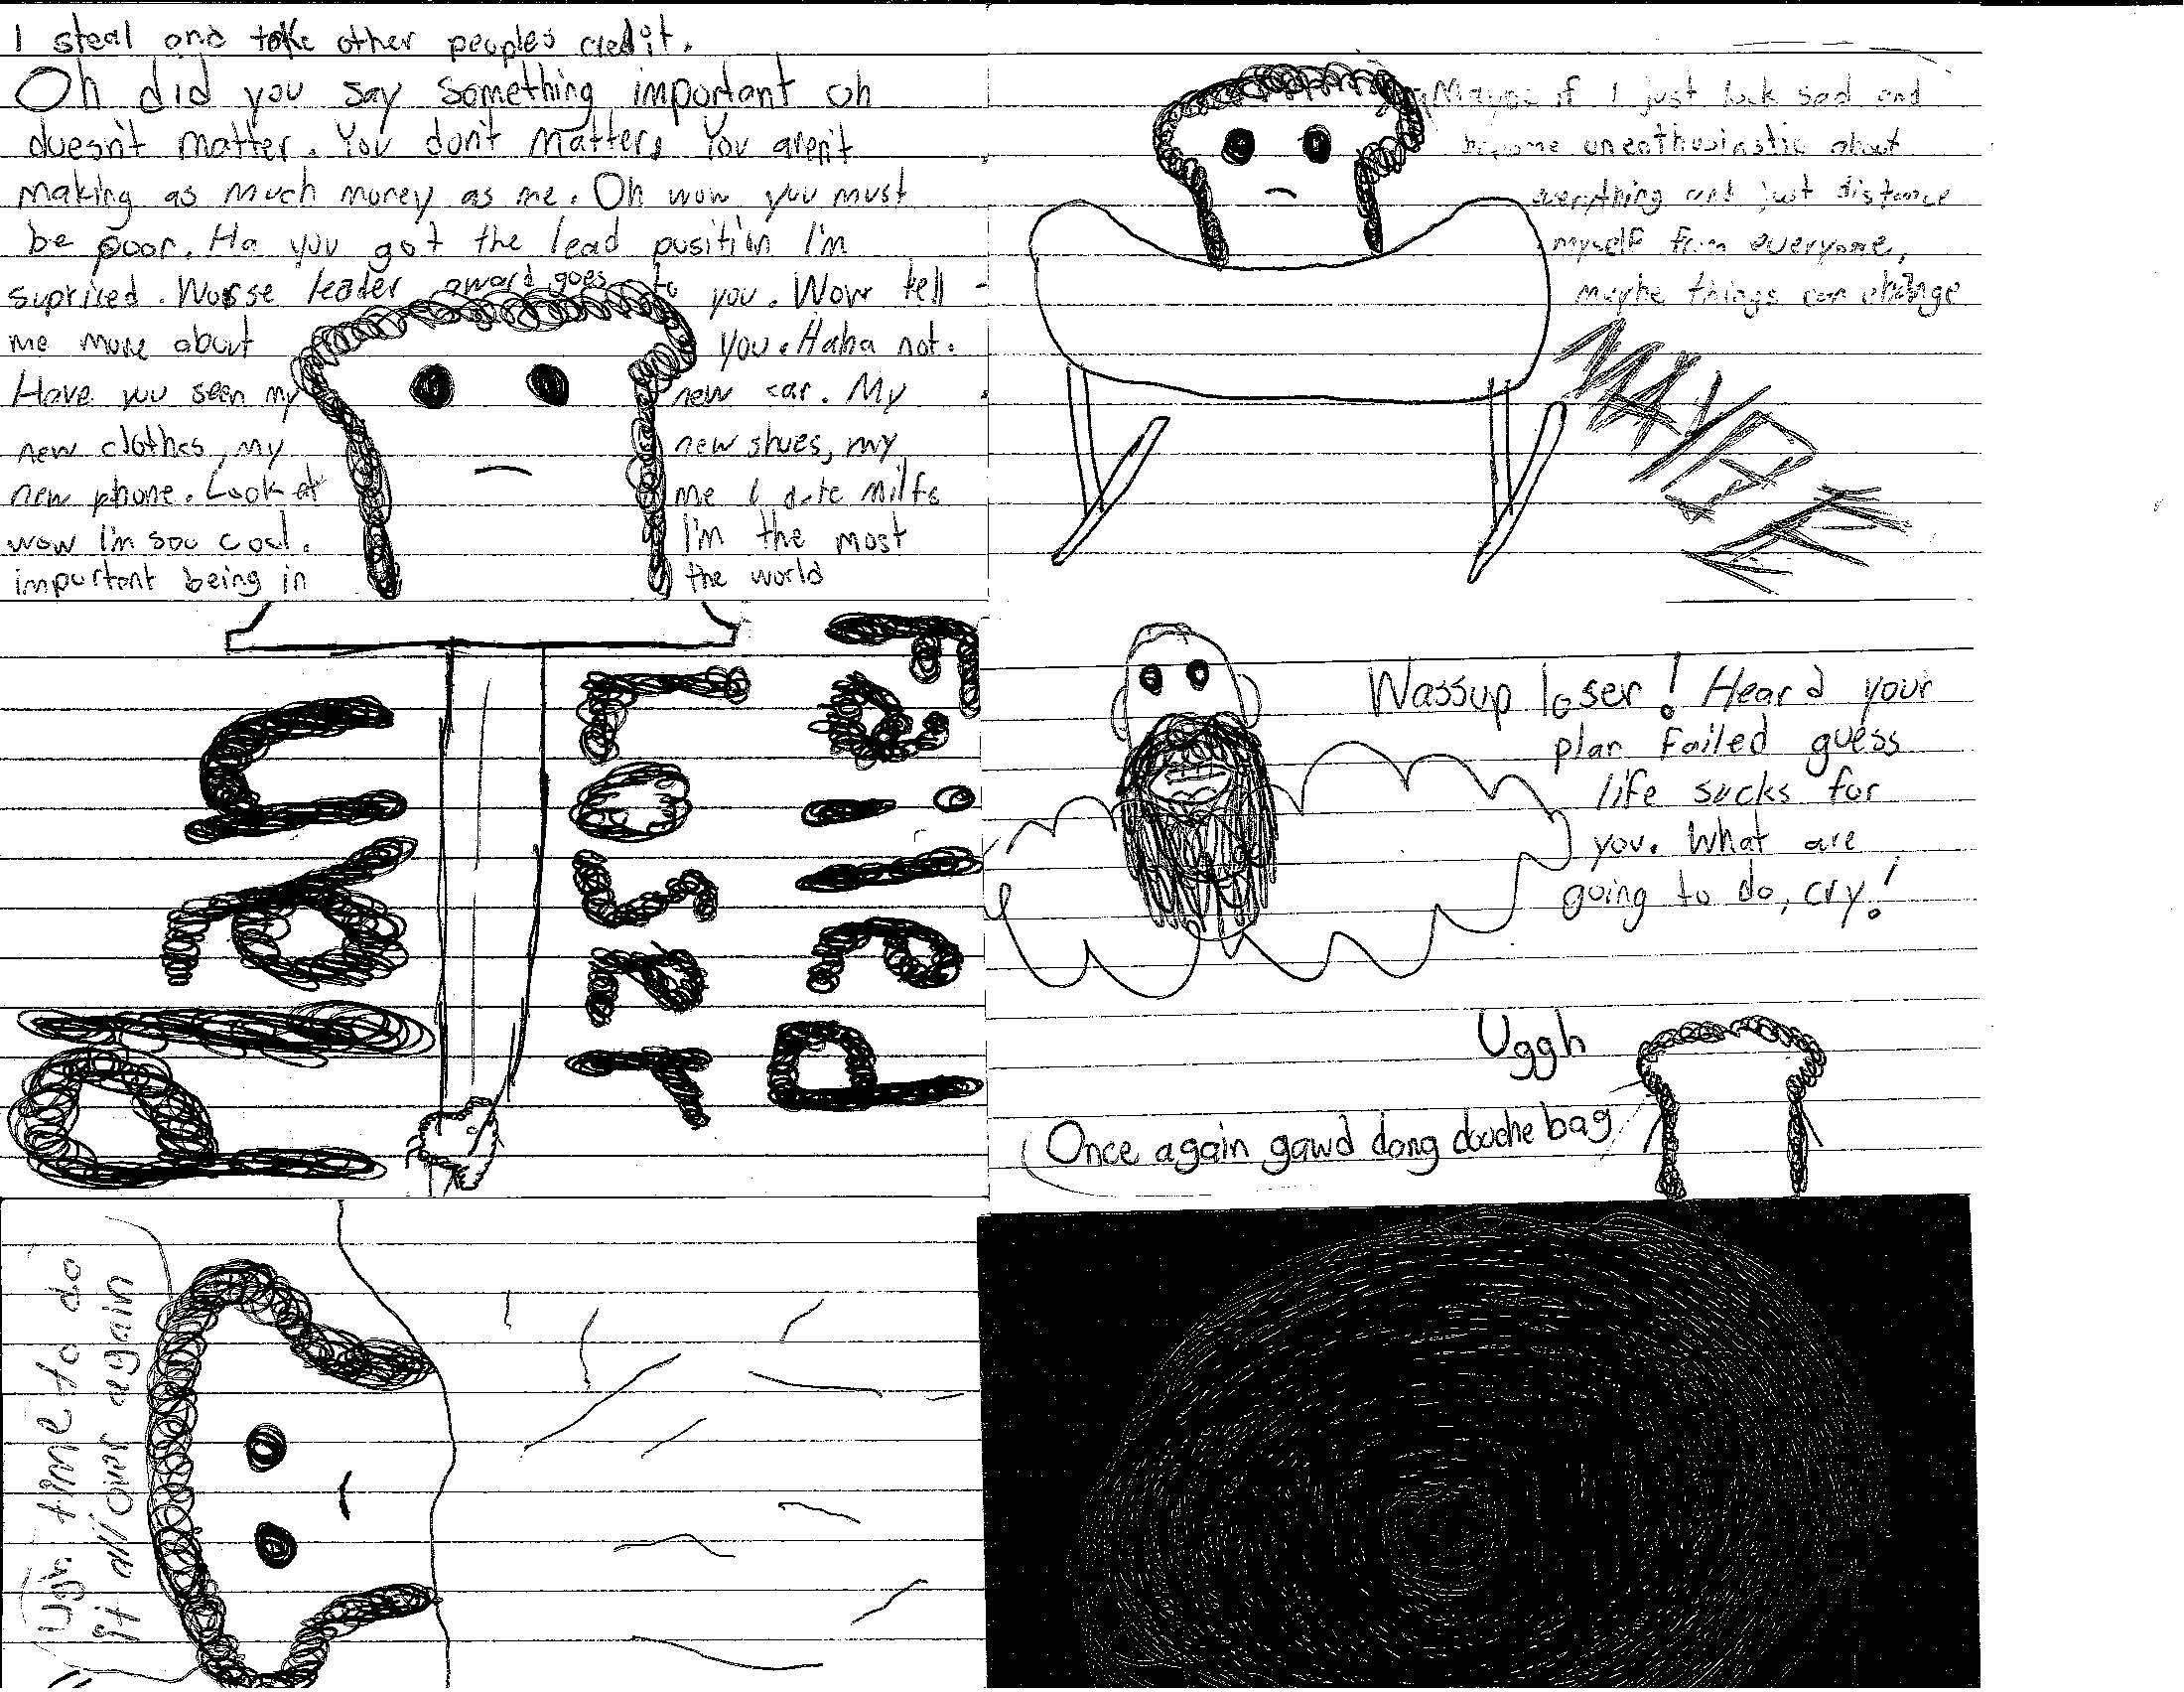 I steal and take other peoples credit.
Oh did you say something important oh
doesn't matter. You don't matter, You aren't
making as much money as me. Oh wow you must
be poor. Ha you got the lead position I'm
suprised. Worse leader award goes to you. Wow tell
me more about you. Haha not.
Have you seen my new car. My
new clothes, my new shoes, my
new phone. Look at me I date milfs
wow I'm soo cool. I'm the most
important being in the world
Maybe if I just look sad and
become unenthusiastic about
everything and just distance
myself from everyone,
maybe things can change
MAYBE
Wassup loser! Heard your
plan failed guess
life sucks for
you. What are
going to do, cry!
Uggh
Once again gawd dang douche bag
Ugh time to do
it all over again